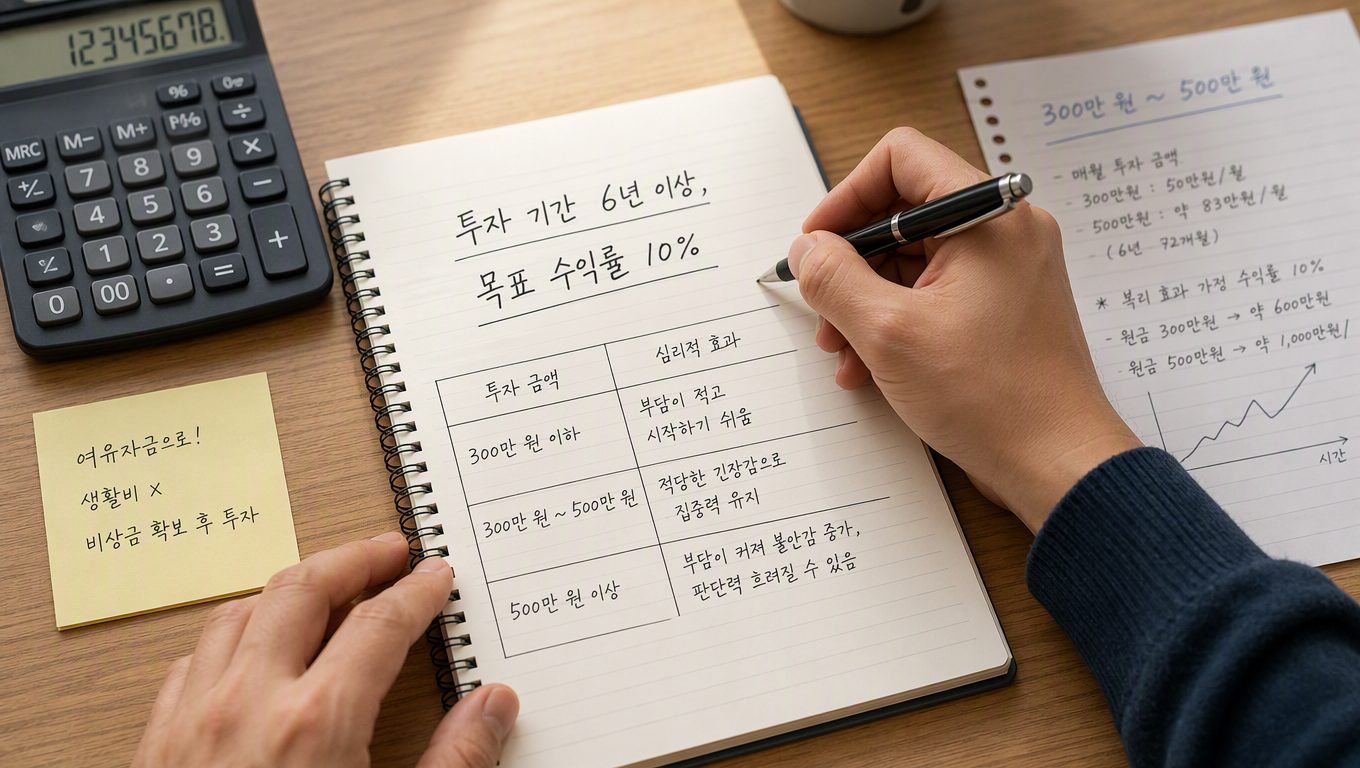 12345678.
% 0-
MRC M− M+ P% ÷
+/- 7 8 9 ×
4 5 6 −
% 1 2 3 +
0 00 · =
여유자금으로!
생활비 ×
비상금 확보 후 투자
투자 기간 6년 이상,
목표 수익률 10%
투자 금액 심리적 효과
300만 원 이하 부담이 적고
시작하기 쉬움
300만 원 ~ 500만 원 적당한 긴장감으로
집중력 유지
500만 원 이상 부담이 커져 불안감 증가,
판단력 흐려질 수 있음
300만 원 ~ 500만 원
- 매월 투자 금액
- 300만원 : 50만원/월
- 500만원 : 약 83만원/월
- (6년 72개월)
* 복리 효과 가정 수익률 10%
- 원금 300만원 → 약 600만원
- 원금 500만원 → 약 1,000만원/
시간